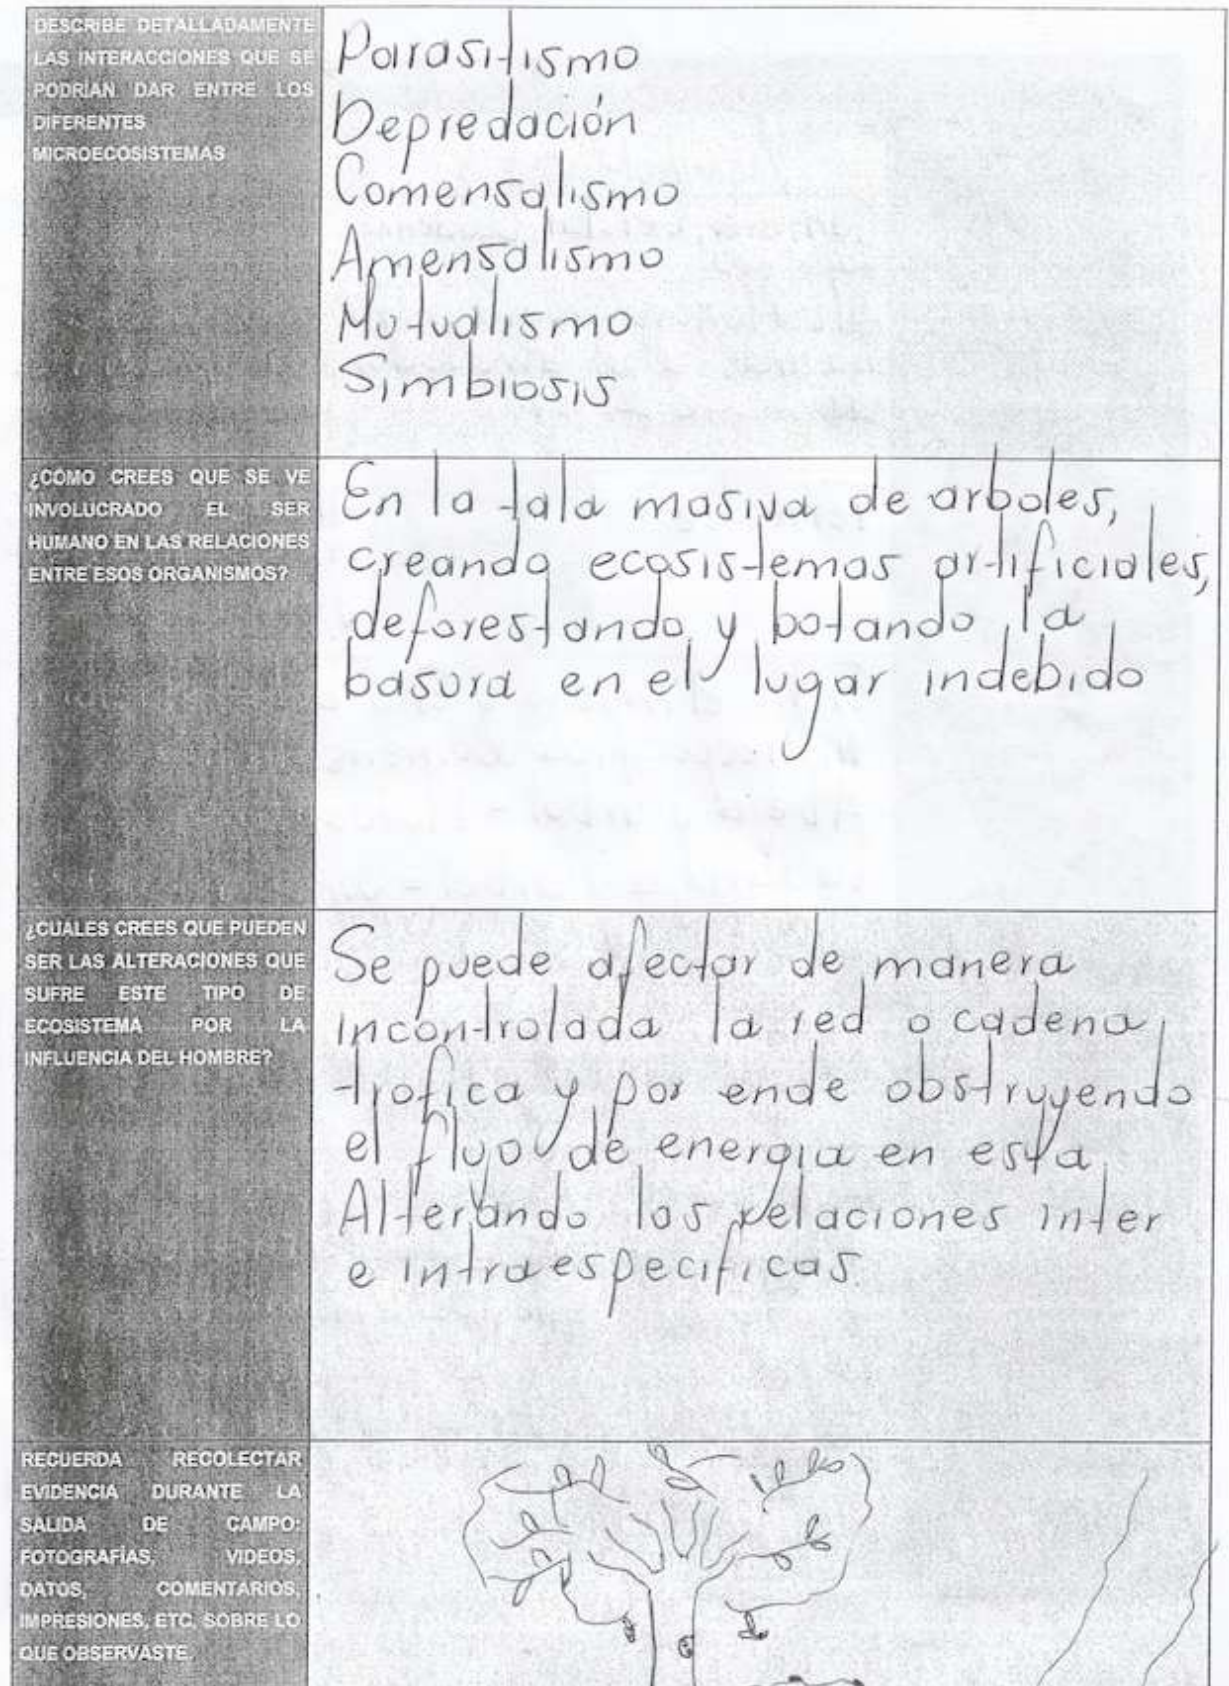 DESCRIBE DETALLADAMENTE
LAS INTERACCIONES QUE SE
PODRÍAN DAR ENTRE LOS
DIFERENTES
MICROECOSISTEMAS
Parasitismo
Depredación
Comensalismo
Amensalismo
Mutualismo
Simbiosis
¿CÓMO CREES QUE SE VE
INVOLUCRADO EL SER
HUMANO EN LAS RELACIONES
ENTRE ESOS ORGANISMOS?
En la tala masiva de arboles,
creando ecosistemas artificiales,
deforestando y botando la
basura en el lugar indebido
¿CUALES CREES QUE PUEDEN
SER LAS ALTERACIONES QUE
SUFRE ESTE TIPO DE
ECOSISTEMA POR LA
INFLUENCIA DEL HOMBRE?
Se puede afectar de manera
incontrolada la red o cadena
trofica y por ende obstruyendo
el flujo de energia en esta
Alterando las relaciones inter
e intraespecificas.
RECUERDA RECOLECTAR
EVIDENCIA DURANTE LA
SALIDA DE CAMPO:
FOTOGRAFÍAS, VIDEOS,
DATOS, COMENTARIOS,
IMPRESIONES, ETC, SOBRE LO
QUE OBSERVASTE.